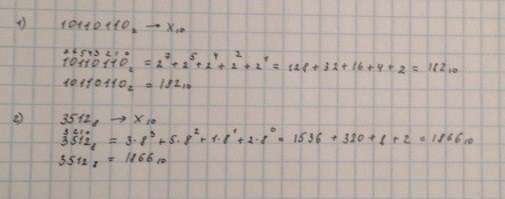 1) 10110110₂ → X₁₀
7 6 5 4 3 2 1 0
10110110₂ = 2⁷ + 2⁵ + 2⁴ + 2² + 2¹ = 128 + 32 + 16 + 4 + 2 = 182₁₀
10110110₂ = 182₁₀
2) 3512₈ → X₁₀
3 2 1 0
3512₈ = 3·8³ + 5·8² + 1·8¹ + 2·8⁰ = 1536 + 320 + 8 + 2 = 1866₁₀
3512₈ = 1866₁₀